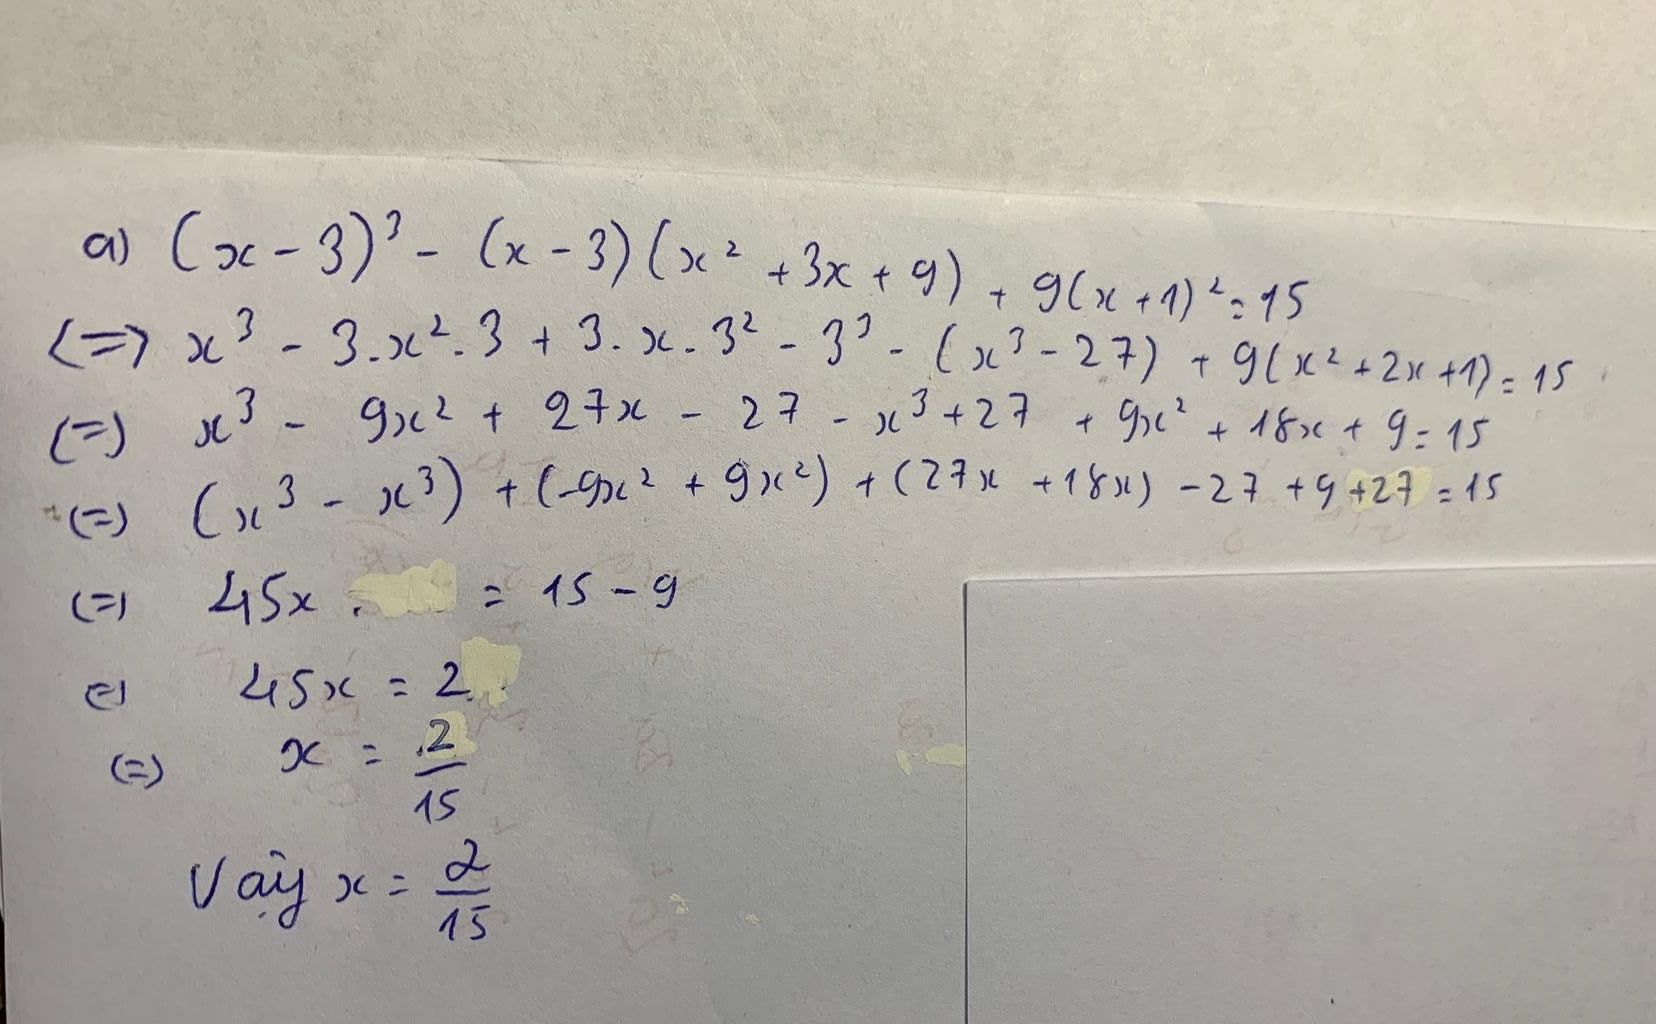 a) (x - 3)³ - (x - 3)(x² + 3x + 9) + 9(x + 1)² = 15
<=> x³ - 3.x².3 + 3.x.3² - 3³ - (x³ - 27) + 9(x² + 2x + 1) = 15
(=) x³ - 9x² + 27x - 27 - x³ + 27 + 9x² + 18x + 9 = 15
(=) (x³ - x³) + (-9x² + 9x²) + (27x + 18x) - 27 + 9 + 27 = 15
(=) 45x = 15 - 9
(=) 45x = 2
(=) x = 2/15
Vậy x = 2/15